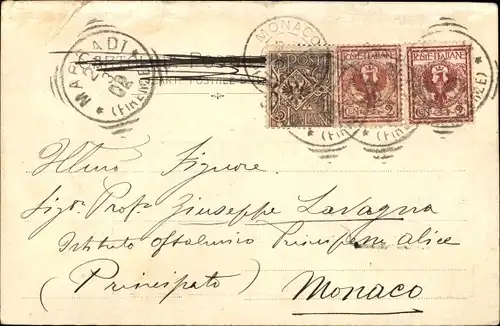 MARRADI
(FIRENZE)
MONACO
POSTE ITALIANE
POSTE ITALIANE
(FIRENZE)
Illmo Signore
Sigr. Profr Giuseppe Lavagna
Istituto Oftalmico Principessa Alice
(Principato) Monaco